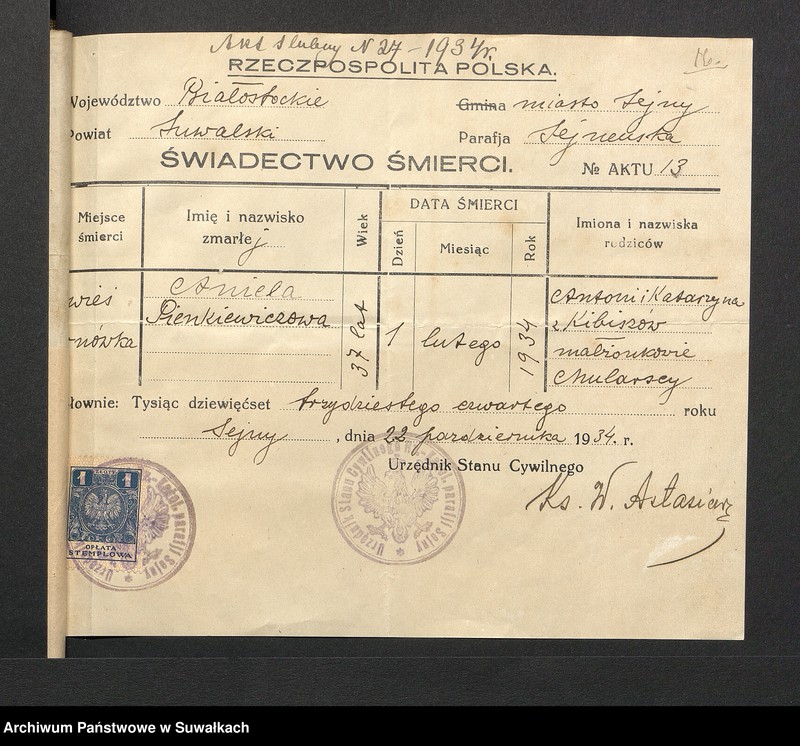 Akt ślubny N 27-1934r.
16.
RZECZPOSPOLITA POLSKA.
Województwo Białostockie
Gmina miasto Sejny
Powiat Suwalski
Parafja Sejneńska
ŚWIADECTWO ŚMIERCI.
№ AKTU 13
Miejsce śmierci
Imię i nazwisko zmarłej
Wiek
DATA ŚMIERCI
Dzień
Miesiąc
Rok
Imiona i nazwiska rodziców
wieś
nówka
Aniela
Pienkiewiczowa
37 lat
1
lutego
1934
Antoni i Katarzyna
z Kibiszów
małżonkowie
Mularscy
łownie: Tysiąc dziewięćset trzydziestego czwartego roku
Sejny, dnia 22 października 1934. r.
Urzędnik Stanu Cywilnego
Ks. W. Astasiewicz
1 1
OPŁATA
STEMPLOWA
Urzędnik Stanu Cywilnego rz.-katol. parafji Sejny
Archiwum Państwowe w Suwałkach